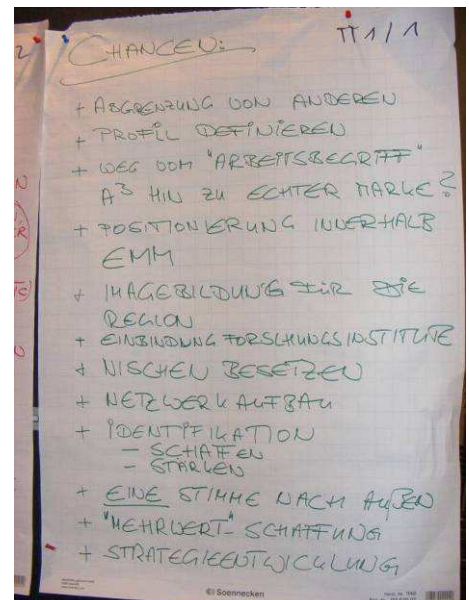 CHANCEN:
TT 1/1
+ ABGRENZUNG VON ANDEREN
+ PROFIL DEFINIEREN
+ WEG VOM "ARBEITSBEGRIFF"
A³ HIN ZU ECHTER MARKE?
+ POSITIONIERUNG INNERHALB
EMM
+ IMAGEBILDUNG FÜR DIE
REGION
+ EINBINDUNG FORSCHUNGSINSTITUTE
+ NISCHEN BESETZEN
+ NETZWERK AUFBAU
+ IDENTIFIKATION
– SCHAFFEN
– STÄRKEN
+ EINE STIMME NACH AUßEN
+ "MEHRWERT"- SCHAFFUNG
+ STRATEGIEENTWICKLUNG
Soennecken